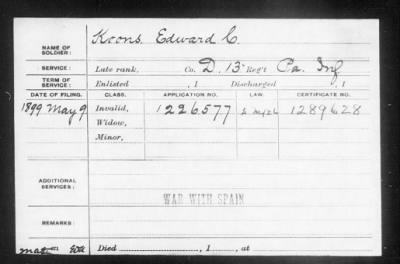 NAME OF SOLDIER: Koons, Edward C.
SERVICE: Late rank, Co. D, 13 Reg't Pa. Inf
TERM OF SERVICE: Enlisted , 1 Discharged , 1
DATE OF FILING. CLASS. APPLICATION NO. LAW. CERTIFICATE NO.
1899 May 9 Invalid, 1226577 1289628
Widow,
Minor,
ADDITIONAL SERVICES:
WAR WITH SPAIN
REMARKS:
Died , 1 , at